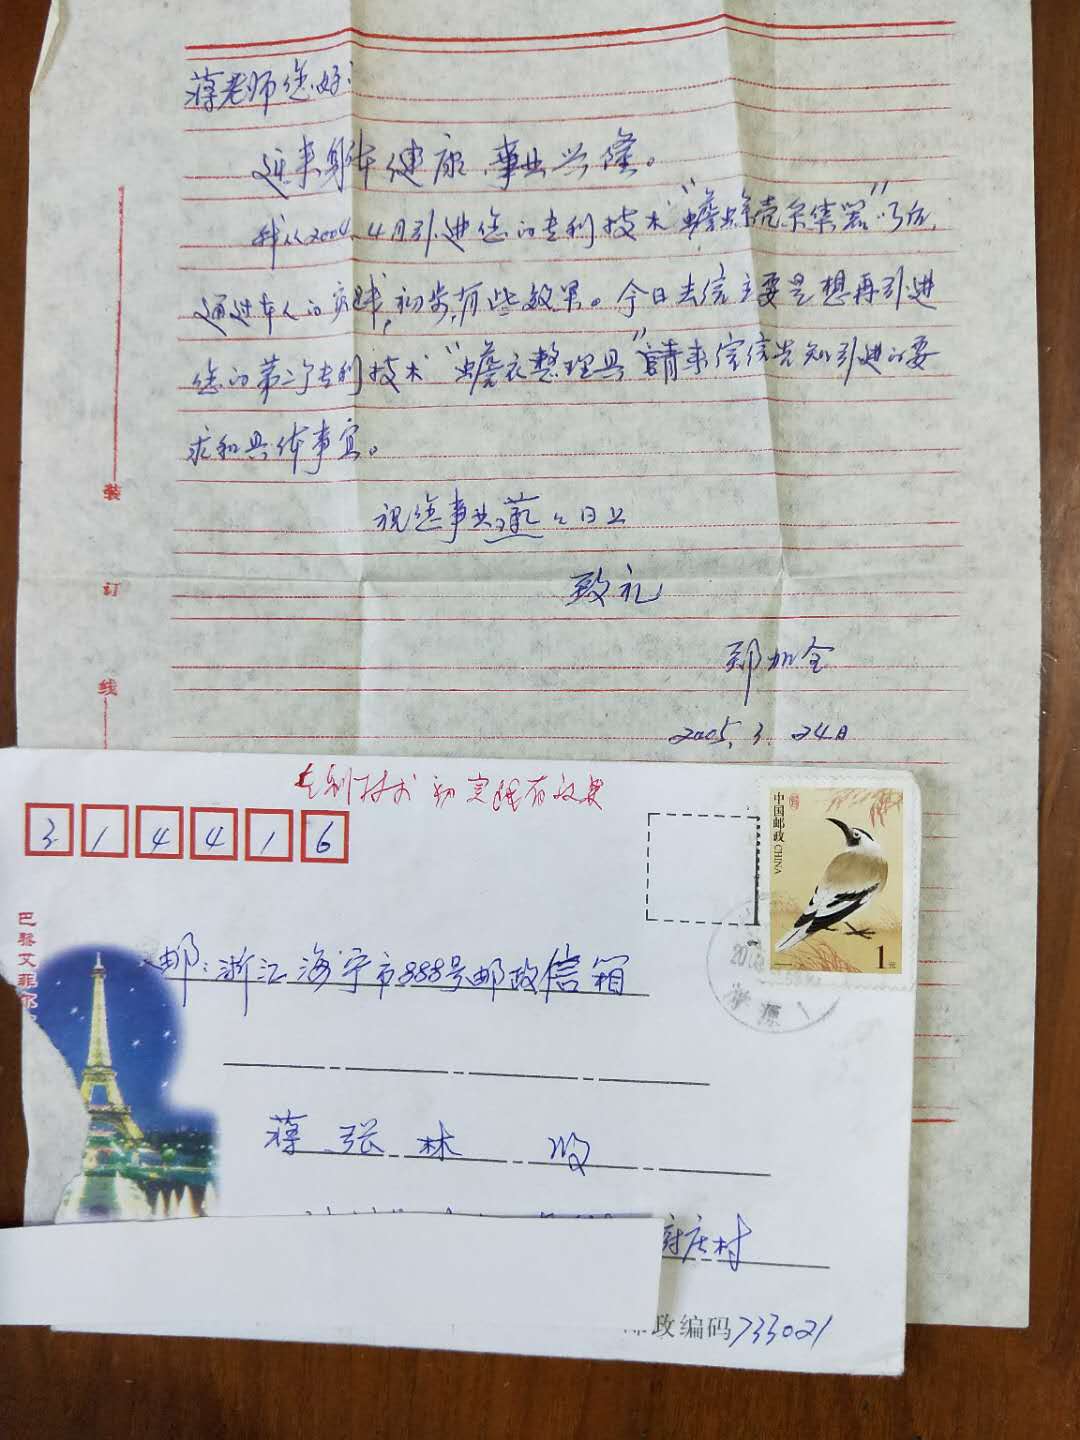 蒋老师您好:
近来身体健康 事业兴隆。
我从2004.4月引进您的专利技术"蟾蜍壳采集器"以后,
通过本人的实践,初步有些效果。今日去信主要是想再引进
您的第二个专利技术"蟾衣整理具"請来信告知引进的要
求和具体事宜。
祝您事业蒸々日上
致礼
郑加全
2005.3.24日
装
订
线
专利技术 初实践有效果
314416
中国邮政 CHINA
1元
巴黎艾菲尔
邮:浙江海宁市888号邮政信箱
蒋张林 收
庄村
邮政编码733021